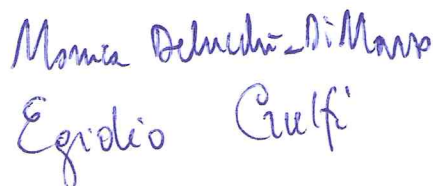 Monica Delucchi-Di Marco
Egidio Ciulfi